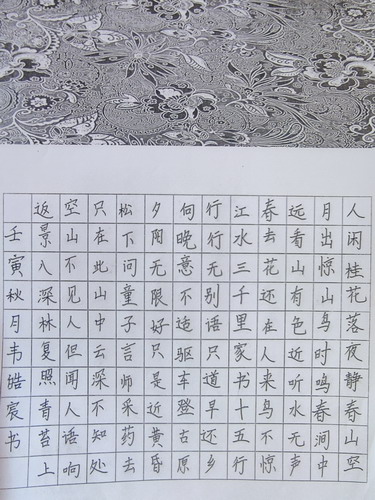 人闲桂花落夜静春山空
月出惊山鸟时鸣春涧中
远看山有色近听水无声
春去花还在人来鸟不惊
江水三千里家书十五行
行行无别语只道早还乡
向晚意不适驱车登古原
夕阳无限好只是近黄昏
松下问童子言师采药去
只在此山中云深不知处
空山不见人但闻人语响
返景入深林复照青苔上
壬寅秋月韦皓宸书